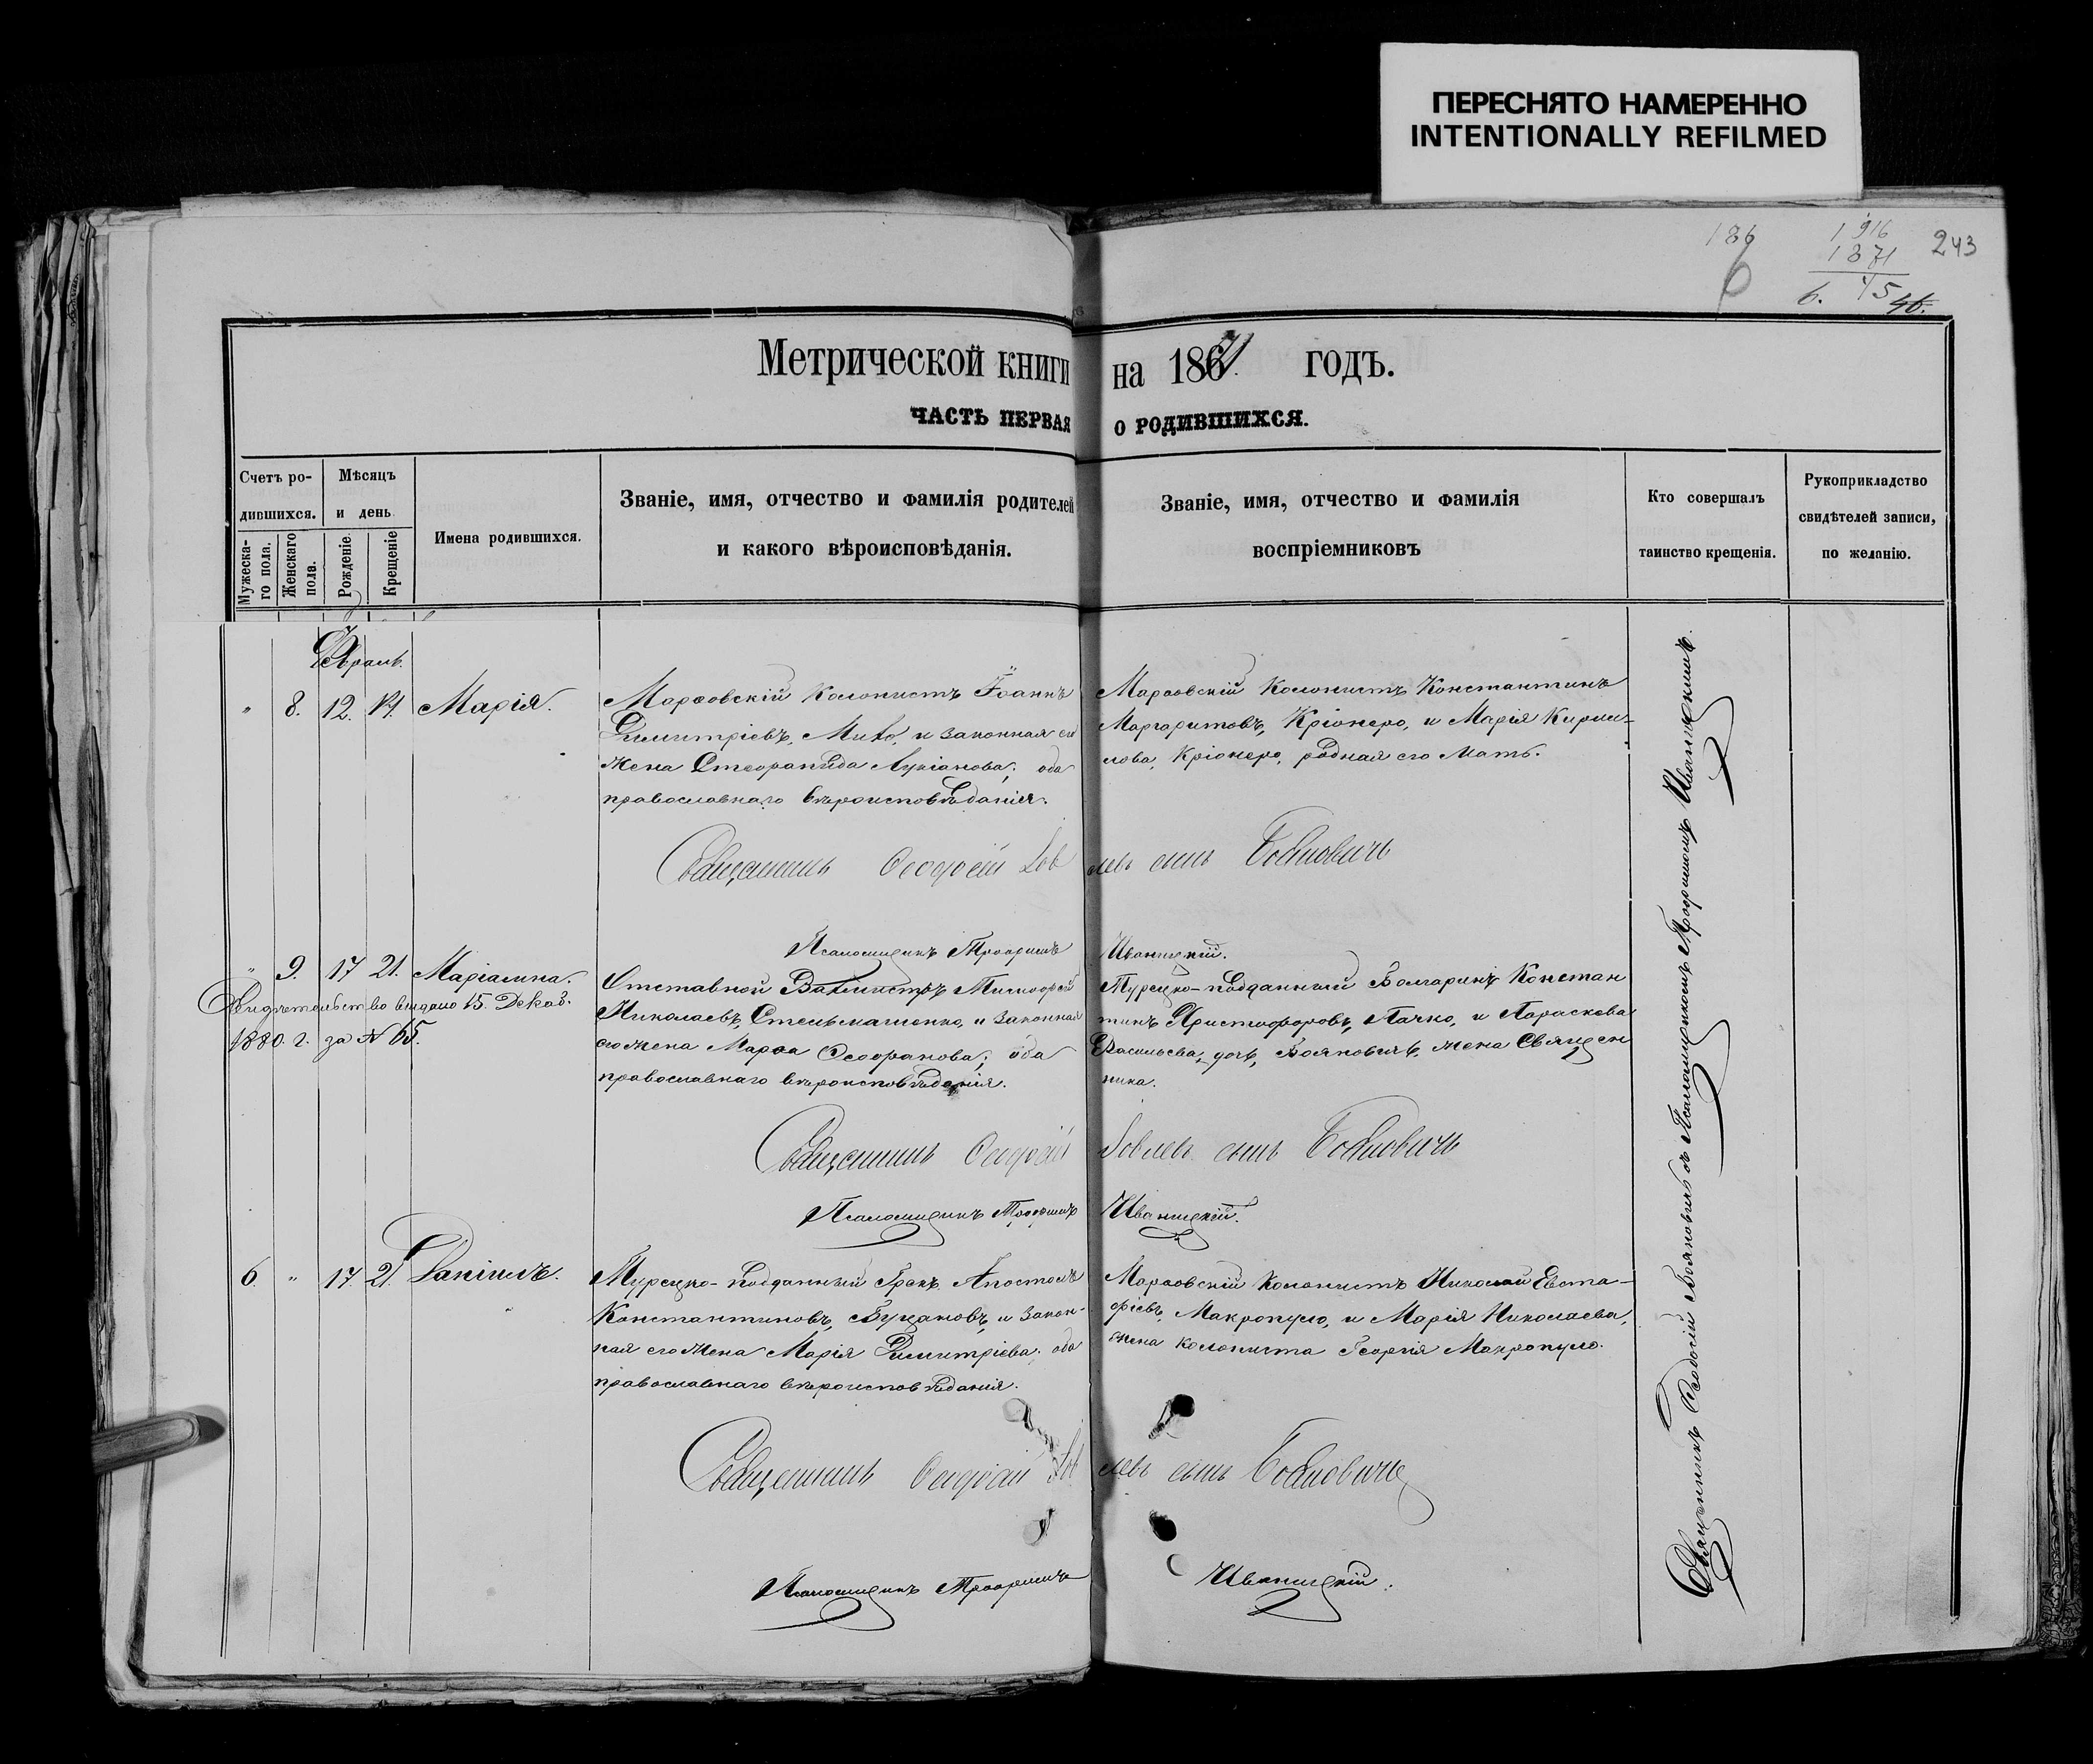 ПЕРЕСНЯТО НАМЕРЕННО
INTENTIONALLY REFILMED
186
1916
1871
45
6.
46.
243
Метрической книги на 1871 годъ.
ЧАСТЬ ПЕРВАЯ О РОДИВШИХСЯ.
Счетъ ро-
дившихся.
Мужеска-
го пола.
Женскаго
пола.
Мѣсяцъ
и день
Рожденіе.
Крещеніе
Имена родившихся.
Званіе, имя, отчество и фамилія родителей
и какого вѣроисповѣданія.
Званіе, имя, отчество и фамилія
воспріемниковъ
Кто совершалъ
таинство крещенія.
Рукоприкладство
свидѣтелей записи,
по желанію.
Февраль
" 8. 12. 14. Марія.
Марѳовскій Колонистъ Іоаннъ
Димитріевъ, и законная его
жена Лукіанова; оба
православнаго вѣроисповѣданія.
Марѳовскій Колонистъ Константинъ
Маргаритовъ, Кріонеро, и Марія Кирил-
лова, Кріонеро, родная его мать.
Священникъ Ѳеодосій Іовлевъ сынъ Бояновичъ
Псаломщикъ Трофимъ Иваницкій.
" 9. 17 21. Маріамна.
Свидѣтельство выдано 15. Декаб.
1880. г. за № 65.
Отставной Вахмистръ Тимофей
Николаевъ, Стельмашенко, и законная
его жена Марѳа Ѳеофанова; оба
православнаго вѣроисповѣданія.
Турецко-подданный Болгаринъ Констан
тинъ Христофоровъ, Пачко, и Параскева
Васильева, дочь, Бояновичъ, жена Священ
ника.
Священникъ Ѳеодосій Іовлевъ сынъ Бояновичъ
Псаломщикъ Трофимъ Иваницкій.
6. " 17. 21. Даніилъ.
Турецко-подданный Грекъ Апостолъ
Константиновъ, и закон-
ная его жена Марія Димитріева; оба
православнаго вѣроисповѣданія.
Марѳовскій колонистъ Николай Евста-
фіевъ, Макропуло, и Марія Николаева,
жена колониста Георгія Макропуло.
Священникъ Ѳеодосій Іовлевъ сынъ Бояновичъ
Псаломщикъ Трофимъ Иваницкій.
Священникъ Ѳеодосій Бояновичъ съ Псаломщикомъ Трофимомъ Иваницкимъ.